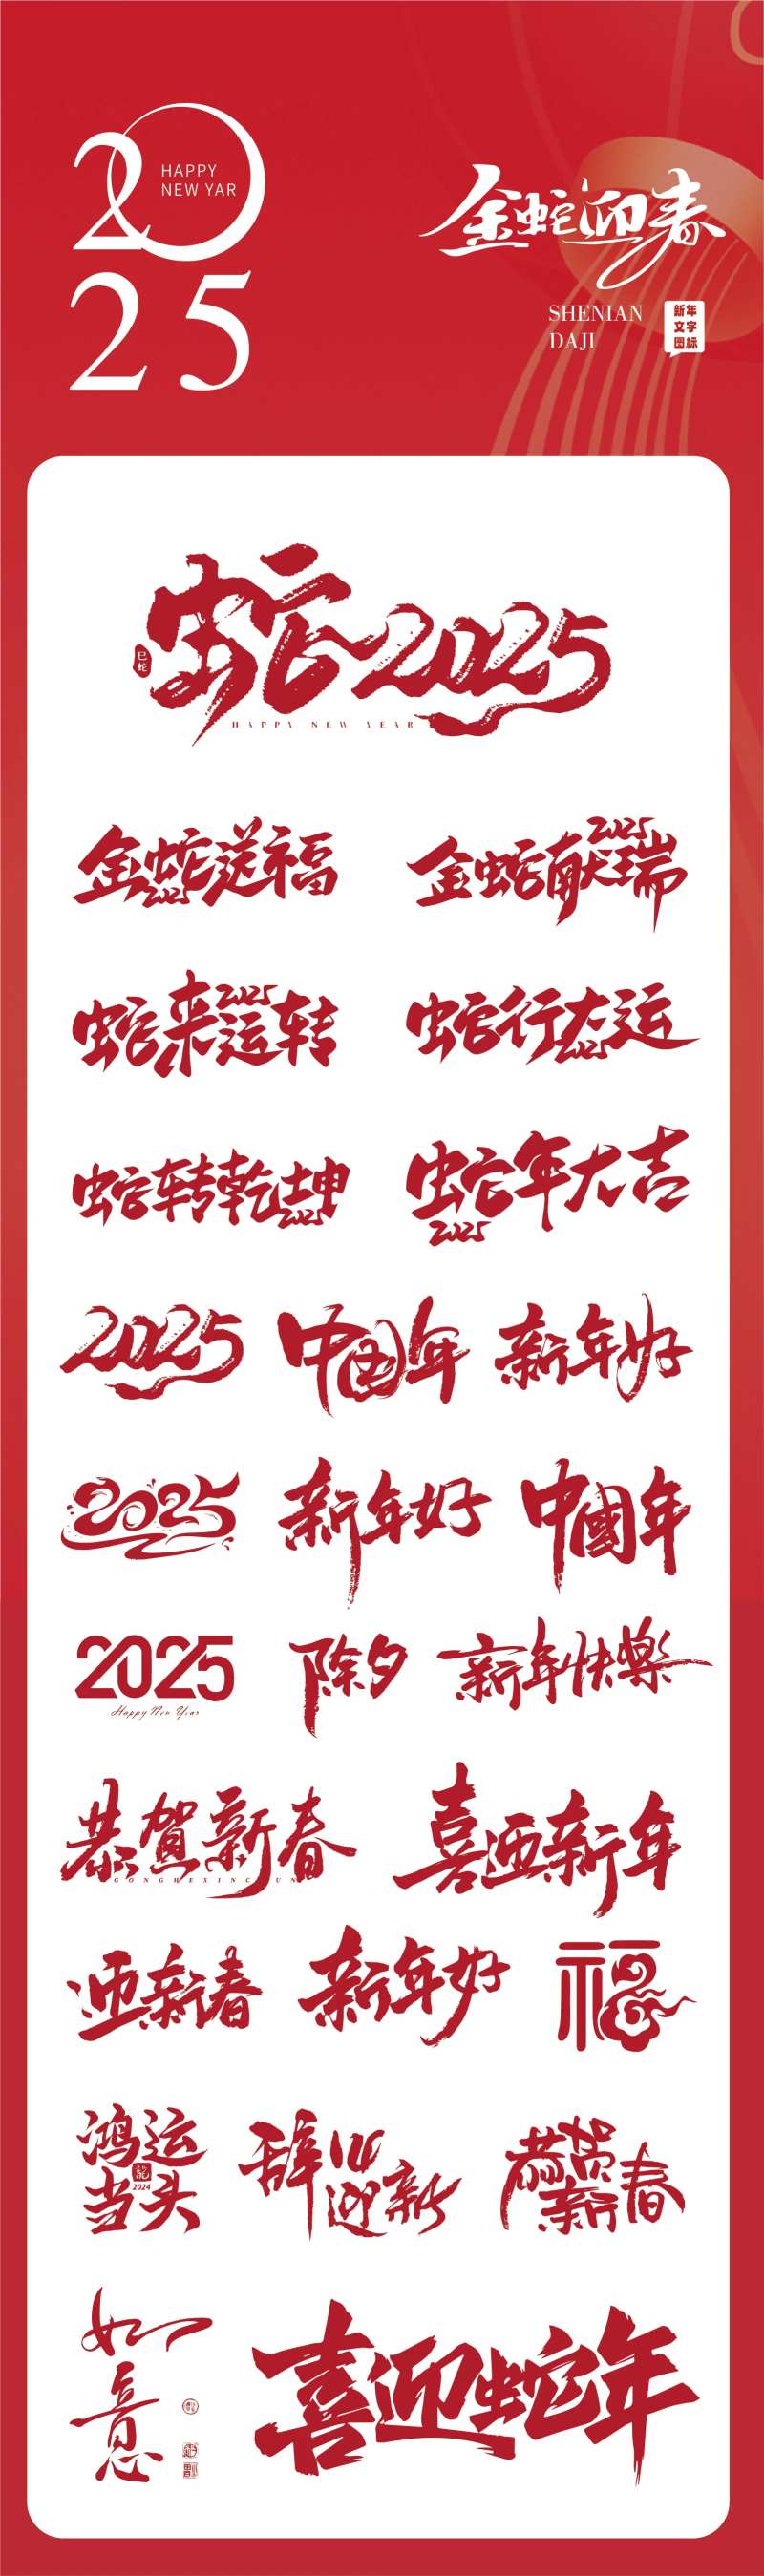 20
HAPPY
NEW YAR
25
金蛇迎春
SHENIAN
DAJI
新年
文字
图标
蛇2025
巳蛇
HAPPY NEW YEAR
金蛇送福
2025
金蛇献瑞
2025
蛇来运转
2025
蛇行大运
2025
蛇转乾坤
2025
蛇年大吉
2025
2025
中国年
新年好
2025
新年好
中國年
2025
Happy New Year
除夕
新年快樂
恭賀新春
喜迎新年
迎新春
新年好
福
鸿运
当头
龍
2024
辞旧
迎新
恭贺
新春
如意
喜迎蛇年